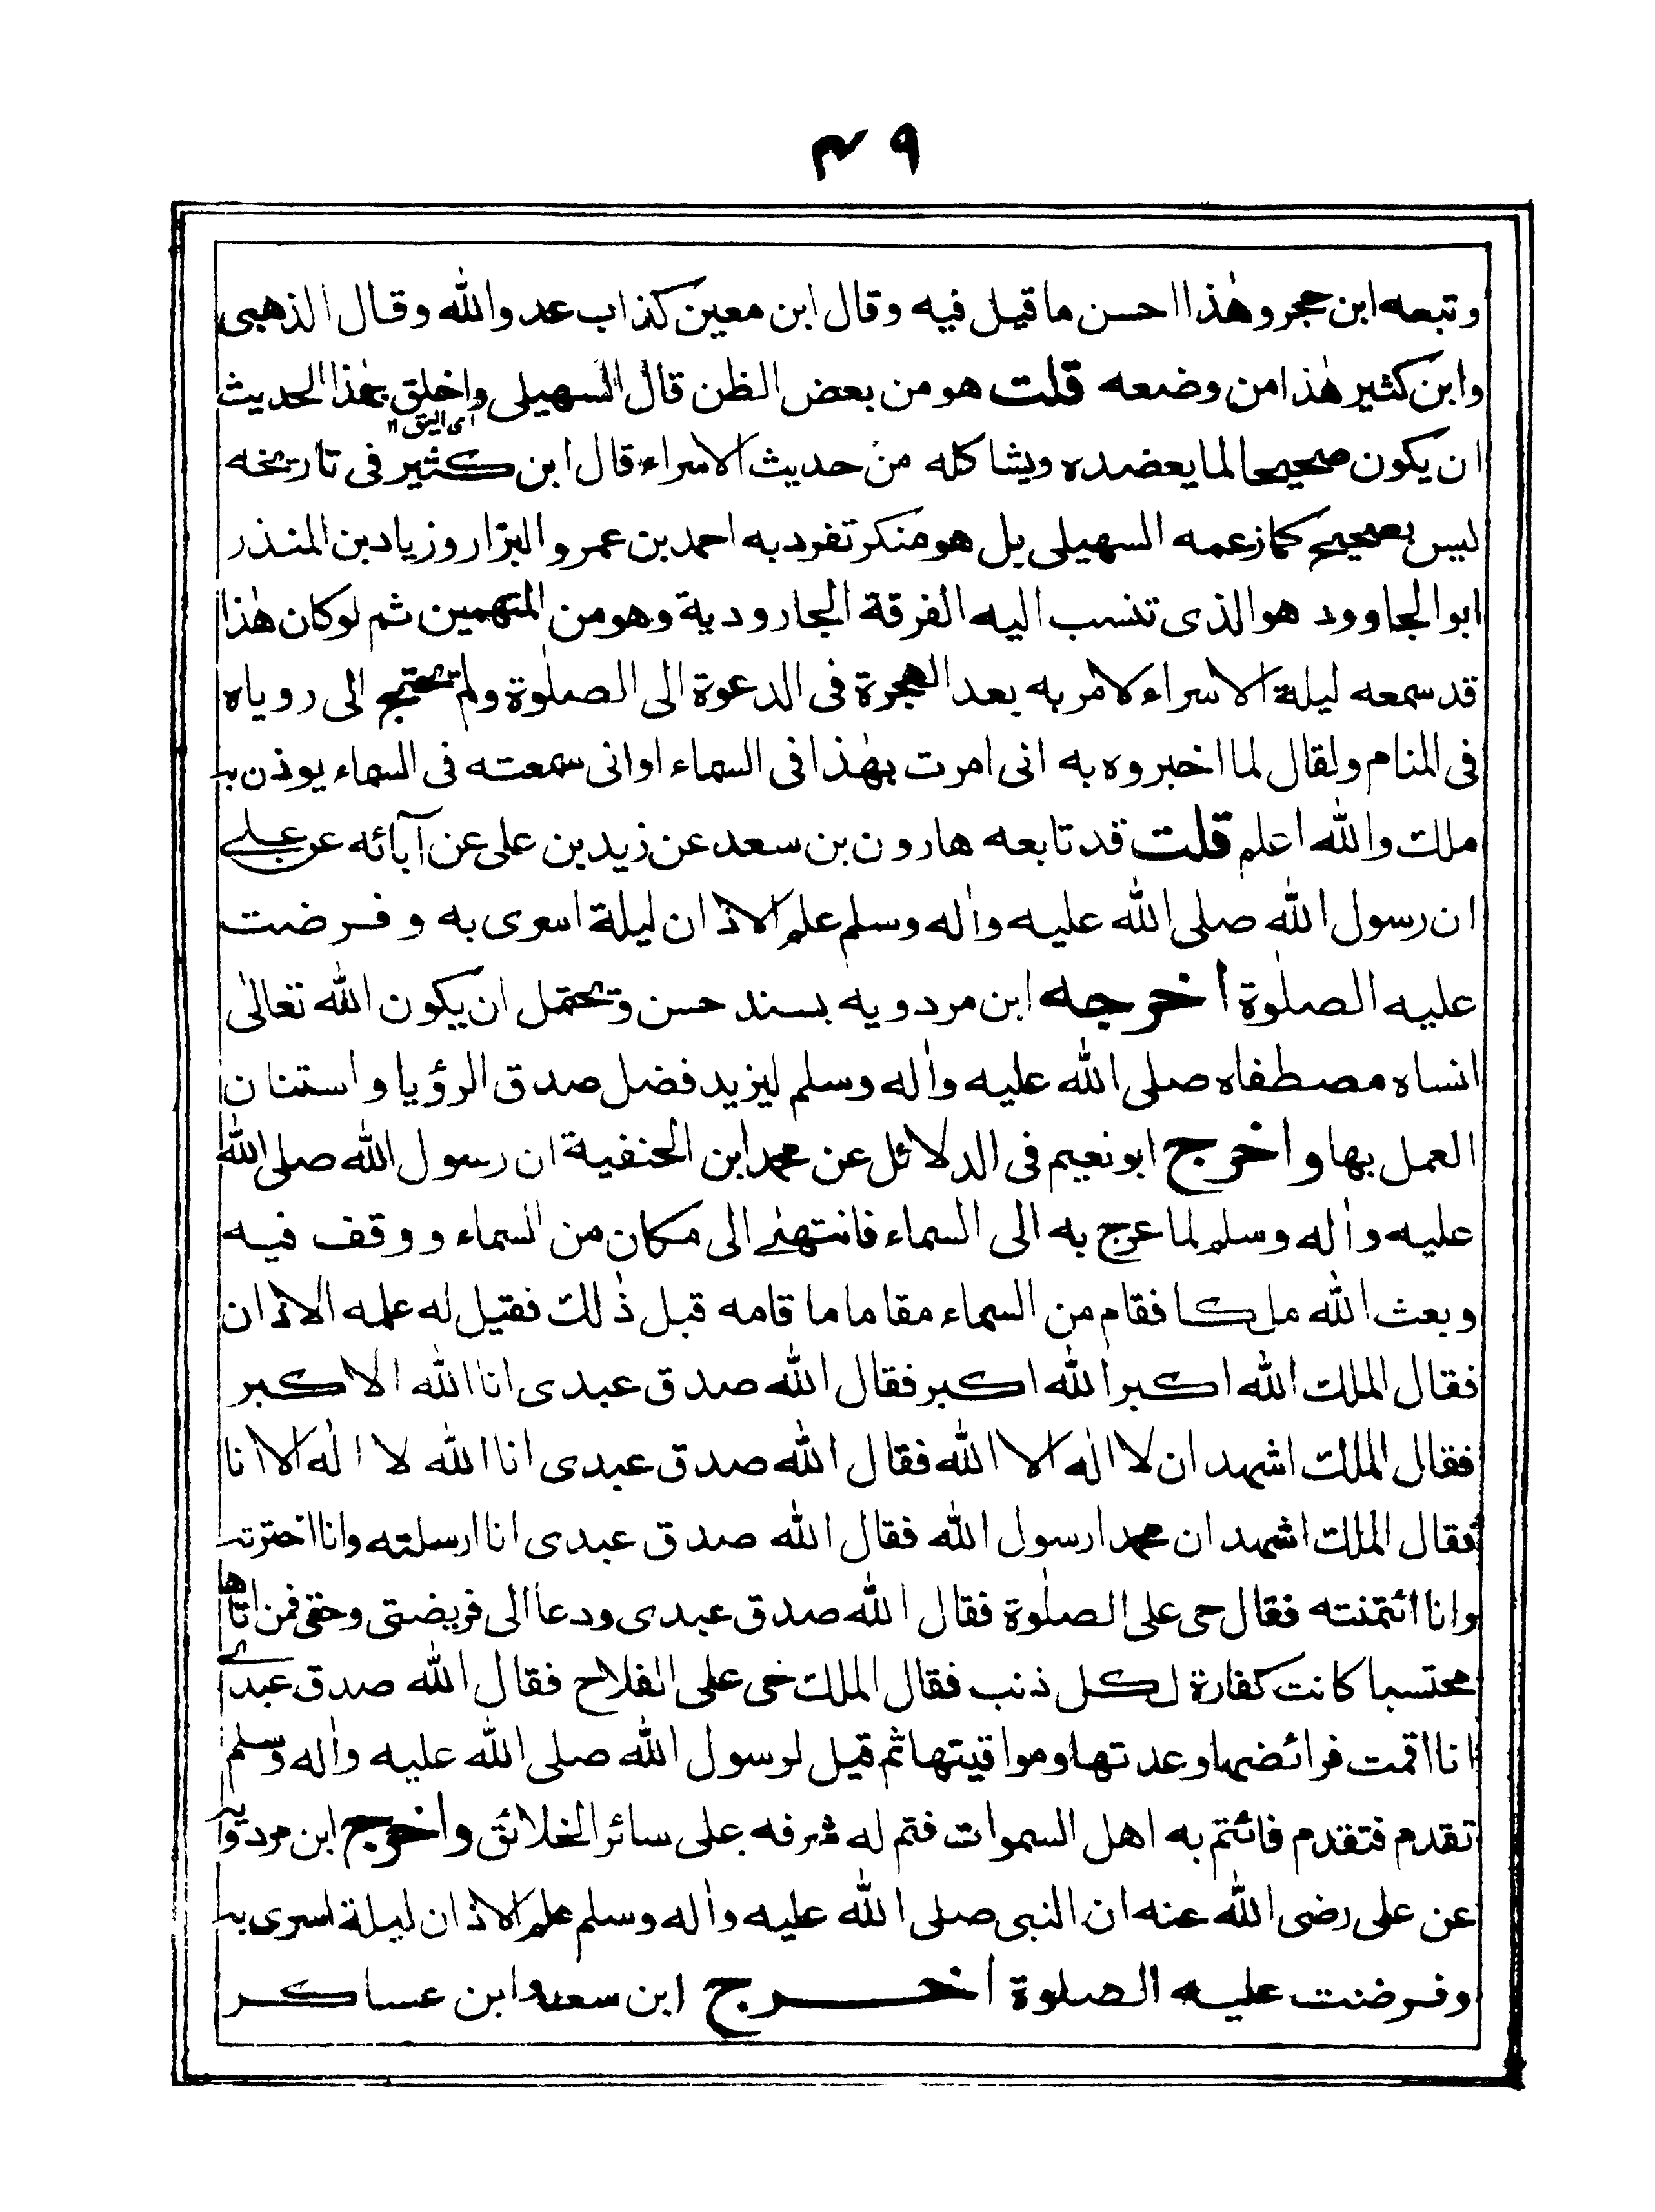 ٤٩
وتبعه ابن حجر وهٰذا احسن ما قيل فيه وقال ابن معين كذاب عدو الله وقال الذهبى
وابن كثير هٰذا من وضعه قلت هو من بعض الظن قال السهيلى واخلق بهٰذا الحديث
اى اليق ١٢
ان يكون صحيحا لما يعضده ويشاكله من حديث الاسراء قال ابن كثير فى تاريخه
ليس بصحيح كما زعمه السهيلى بل هو منكر تفرد به احمد بن عمرو البزار وزياد بن المنذر
ابو الجاوود هو الذى تنسب اليه الفرقة الجارودية وهو من المتهمين ثم لو كان هٰذا
قد سمعه ليلة الاسراء لامر به بعد الهجرة فى الدعوة الى الصلٰوة ولم تحتج الى روياه
فى المنام ولقال لما اخبروه به انى امرت بهٰذا فى السماء اوانى سمعته فى السماء يوذن به
ملك والله اعلم قلت قد تابعه هارون بن سعد عن زيد بن على عن آبائه عن على
ان رسول الله صلى الله عليه واٰله وسلم علم الاذان ليلة اسرى به وفرضت
عليه الصلٰوة اخرجه ابن مردويه بسند حسن وتحتمل ان يكون الله تعالىٰ
انساه مصطفاه صلى الله عليه واٰله وسلم ليزيد فضل صدق الرؤيا واستنان
العمل بها واخرج ابو نعيم فى الدلائل عن محمد ابن الحنفية ان رسول الله صلى الله
عليه واٰله وسلم لما عرج به الى السماء فانتهٰے الى مكان من السماء ووقف فيه
وبعث الله ملكا فقام من السماء مقاما ما قامه قبل ذٰلك فقيل له علمه الاذان
فقال الملك الله اكبر الله اكبر فقال الله صدق عبدى انا الله الاكبر
فقال الملك اشهد ان لا اله الا الله فقال الله صدق عبدى انا الله لا اله الا انا
فقال الملك اشهد ان محمدا رسول الله فقال الله صدق عبدى انا ارسلته وانا اخترته
وانا ائتمنته فقال حى على الصلٰوة فقال الله صدق عبدى ودعا الى فريضتى وحقى فمن اتاها
محتسبا كانت كفارة لكل ذنب فقال الملك حى على الفلاح فقال الله صدق عبدے
انا اقمت فرائضها وعدتها ومواقيتها ثم قيل لرسول الله صلى الله عليه واٰله وسلم
تقدم فتقدم فائتم به اهل السموات فتم له شرفه على سائر الخلائق واخرج ابن مردويه
عن على رضى الله عنه ان النبى صلى الله عليه واٰله وسلم علم الاذان ليلة اسرى به
وفرضت عليه الصلوة اخرج ابن سعد وابن عساكر